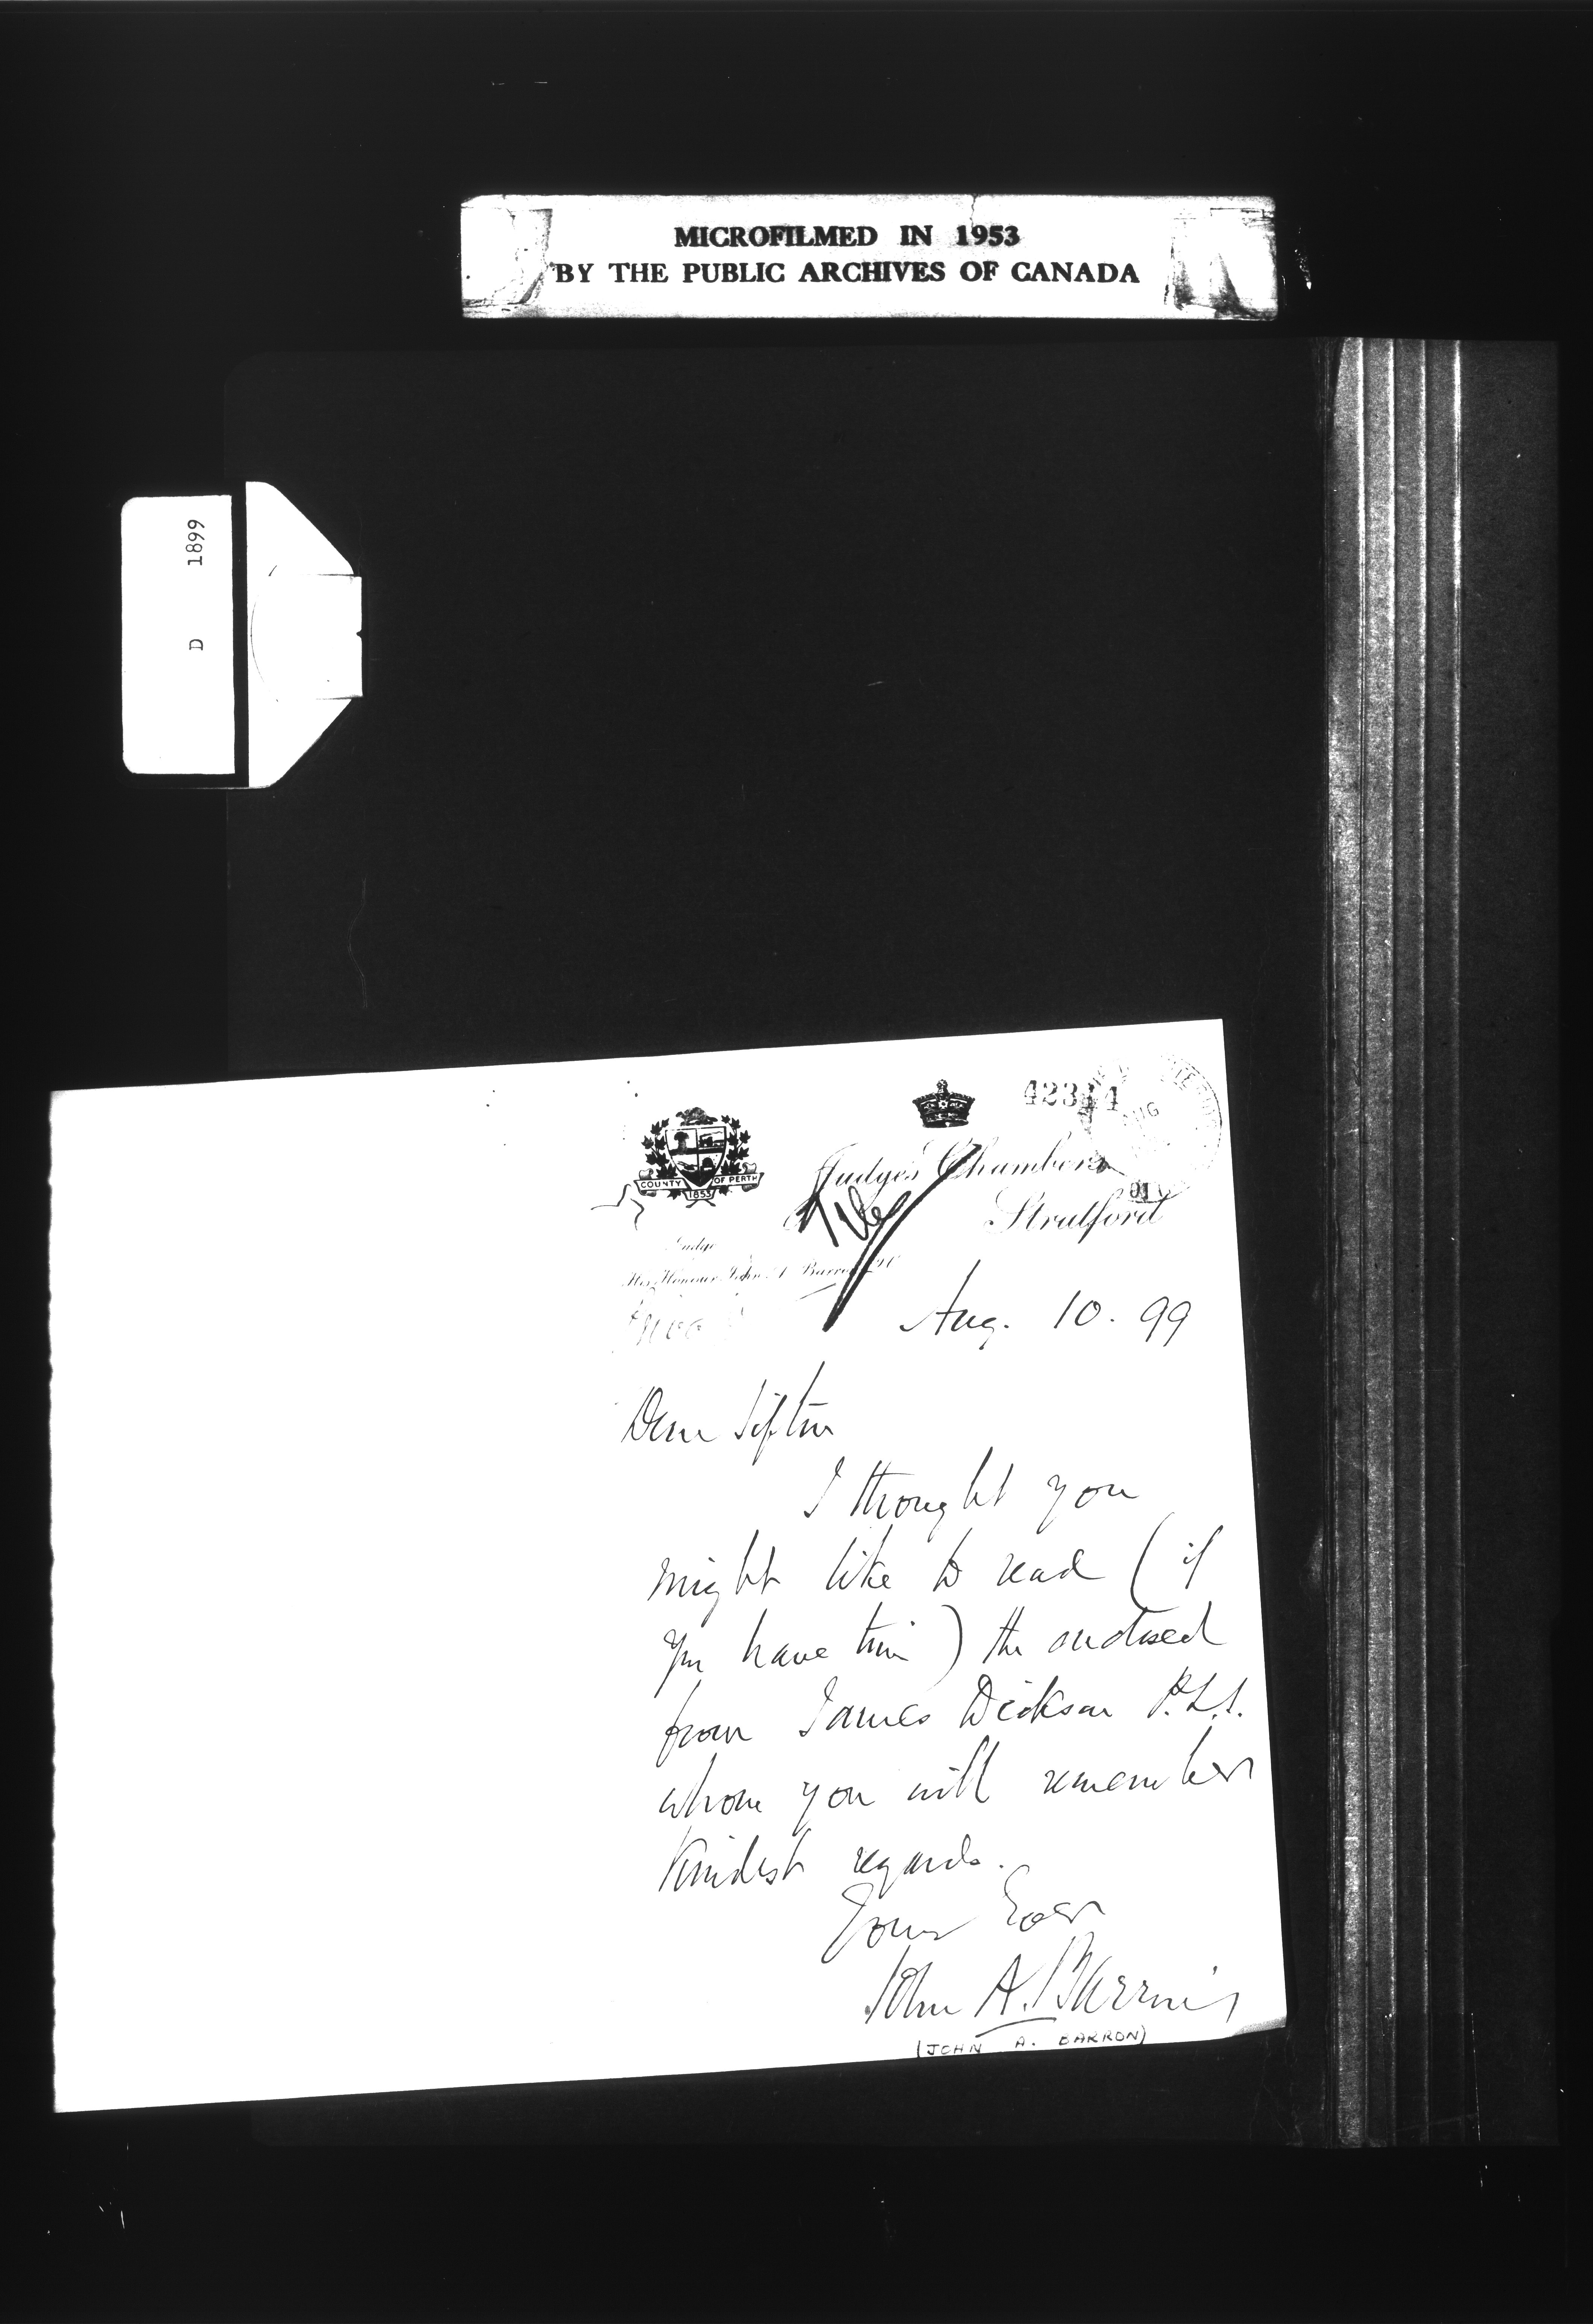 MICROFILMED IN 1953
BY THE PUBLIC ARCHIVES OF CANADA
D 1899
42344
AUG
COUNTY OF PERTH
1853
Judge's Chambers
Stratford
File
Judge
His Honour John A Barron
Aug. 10. 99
Dear Sifton
I thought you
might like to read (if
you have time) the enclosed
from James Dickson P.L.S.
whom you will remember
Kindest regards.
Yours Ever
John A. Barron
(JOHN A. BARRON)